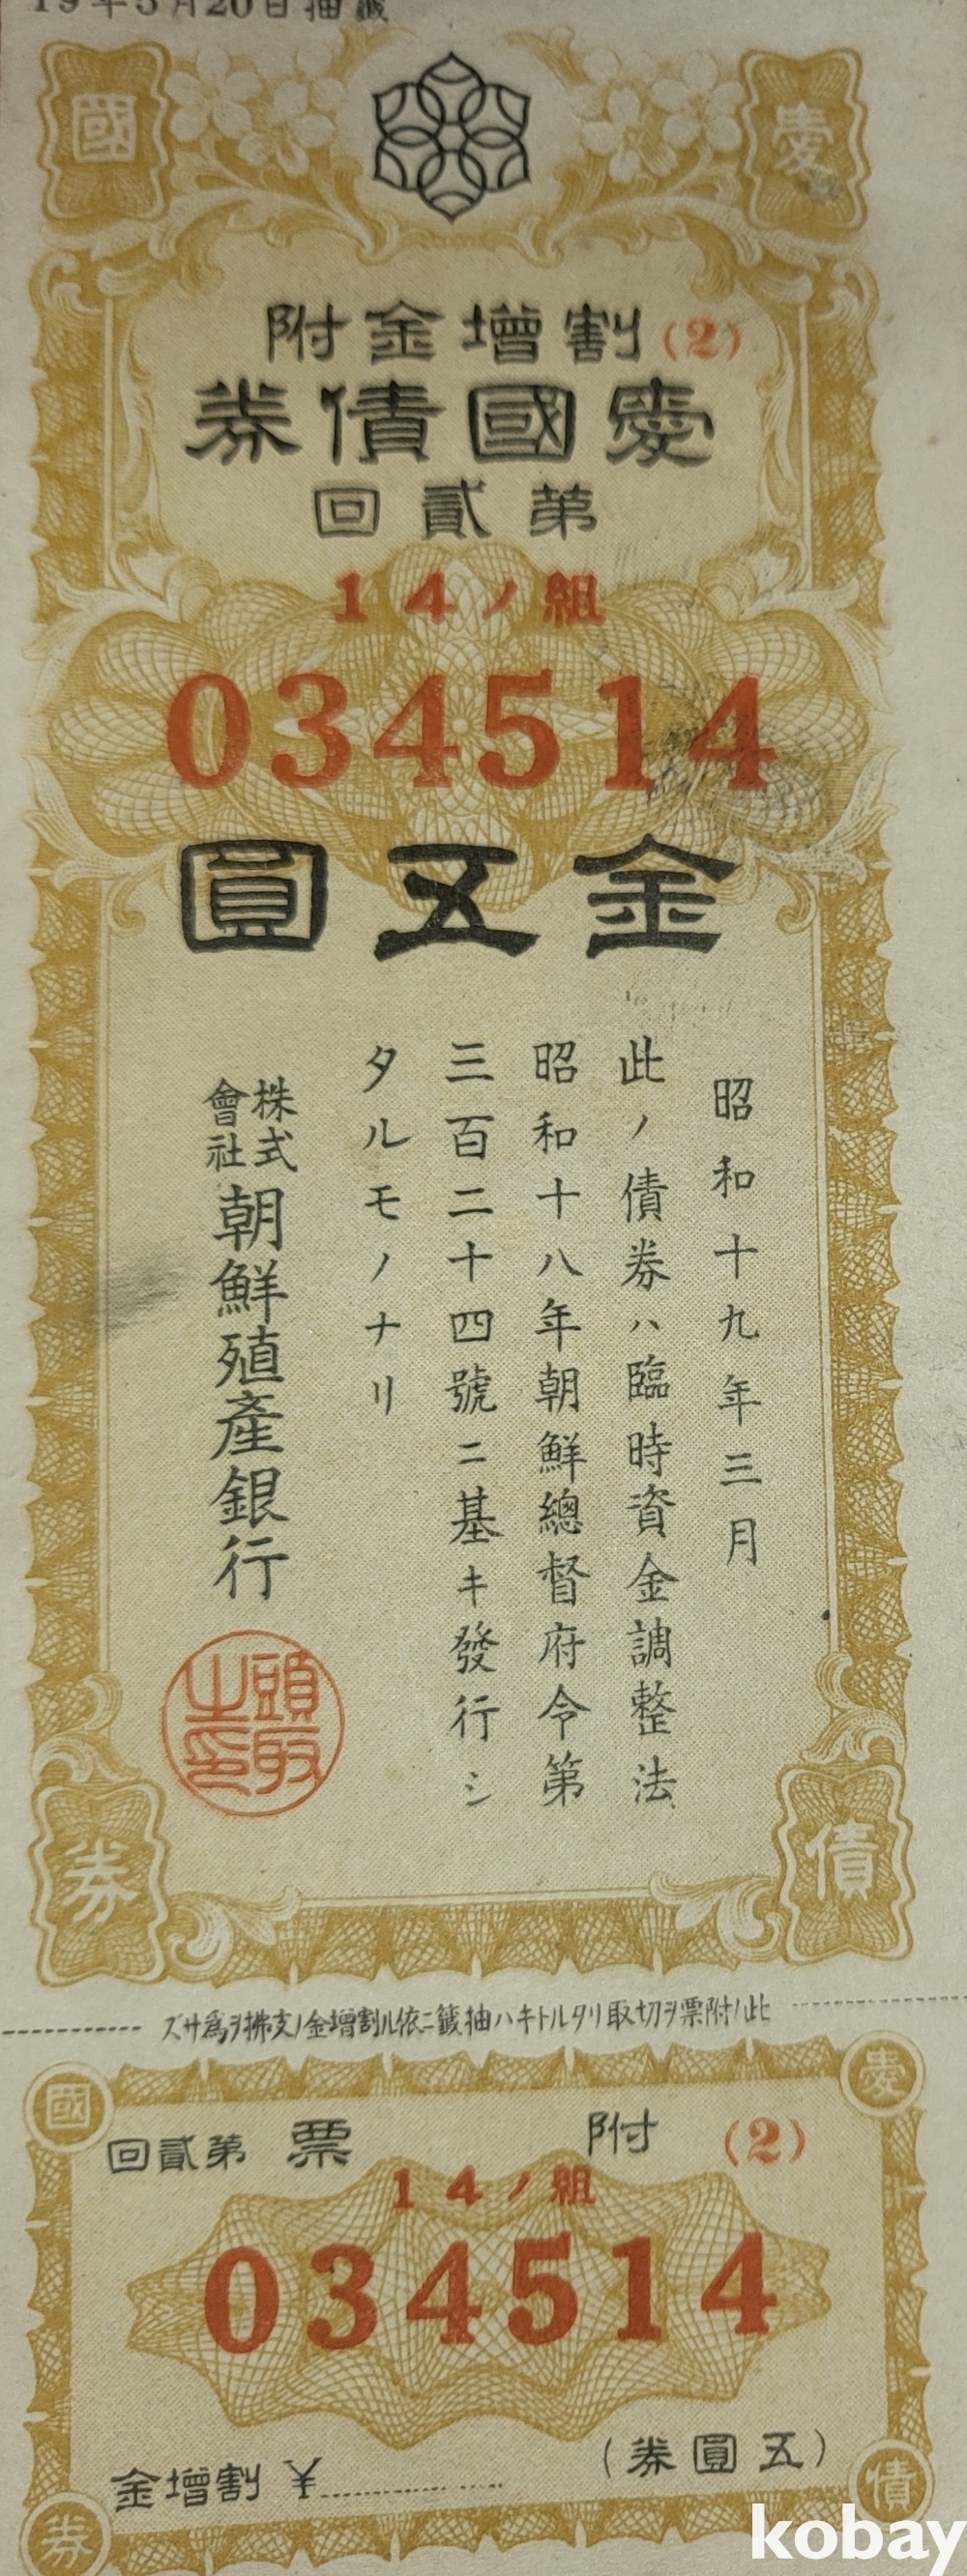 19年5月20日抽籤
愛國
割增金附 (2)
愛國債券
第貳回
14ノ組
034514
金五圓
昭和十九年三月
此ノ債券ハ臨時資金調整法
昭和十八年朝鮮總督府令第
三百二十四號ニ基キ發行シ
タルモノナリ
株式會社 朝鮮殖產銀行
頭取之印
債券
此ノ附票ヲ切取リタルトキハ抽籤ニ依ル割增金ノ支拂ヲ爲サズ
愛國
(2) 附票 第貳回
14ノ組
034514
(五圓券)
割增金 ¥
債券
kobay